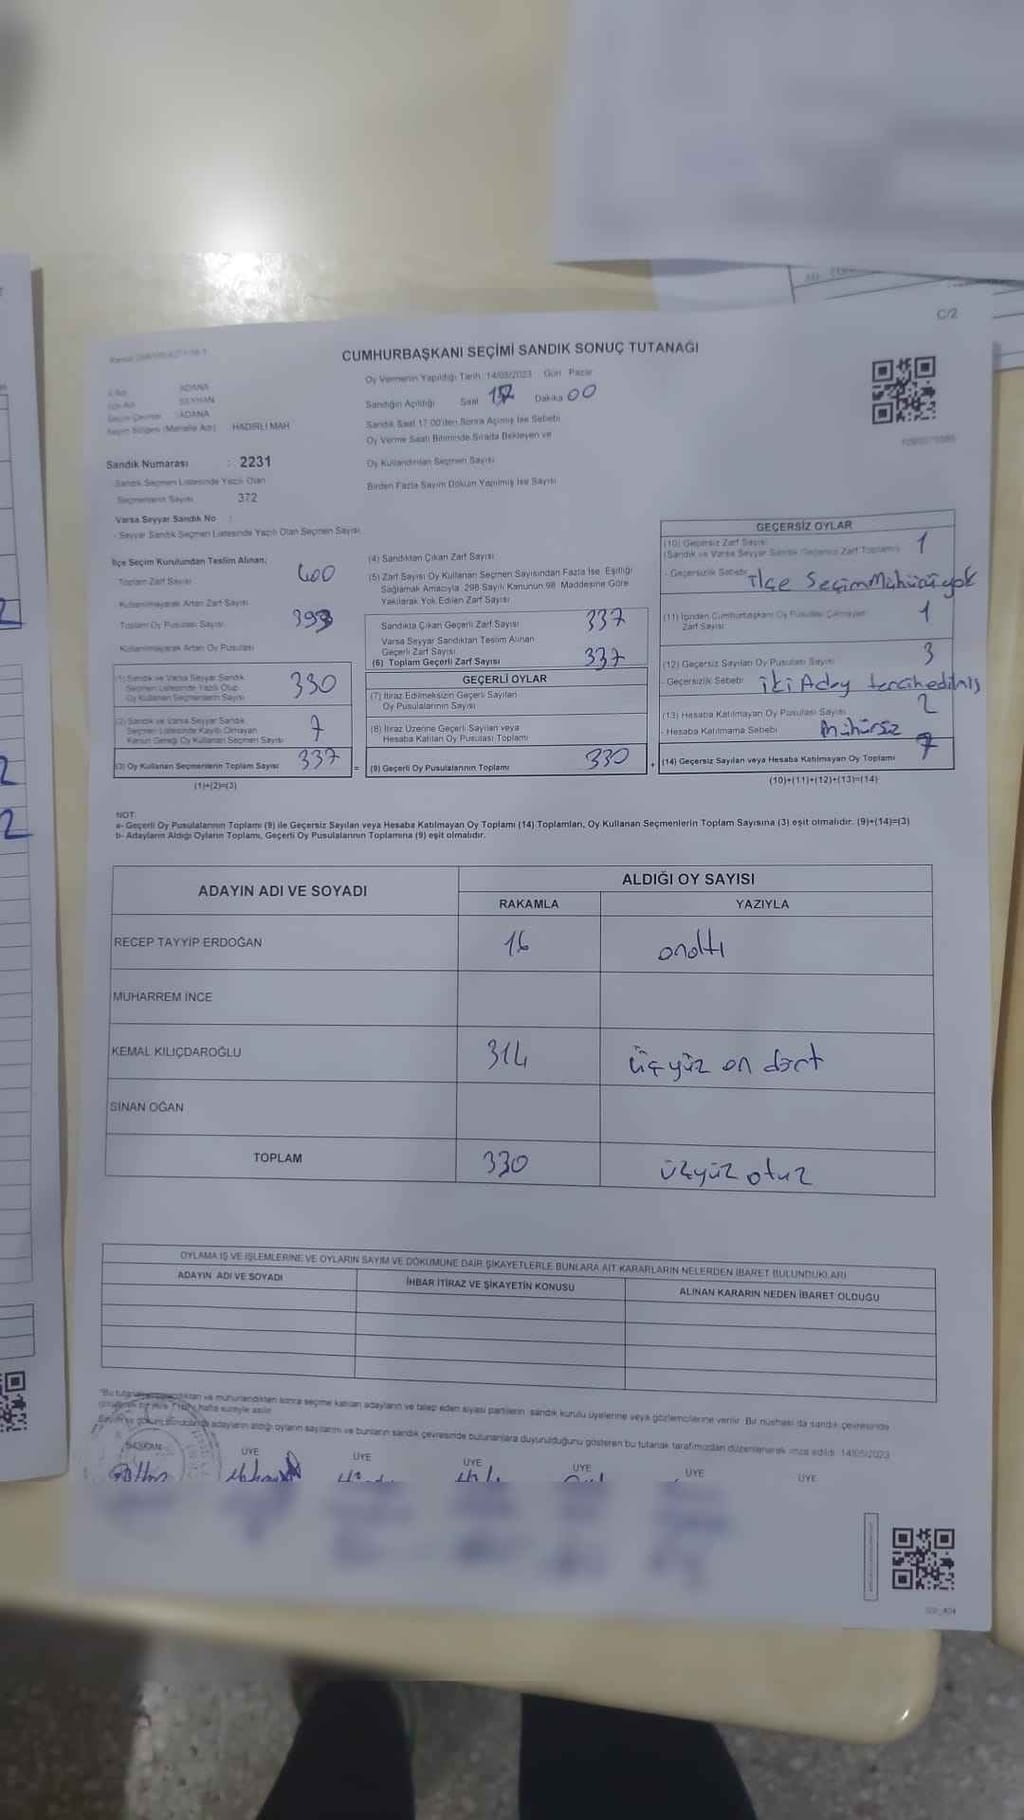 C/2
CUMHURBAŞKANI SEÇİMİ SANDIK SONUÇ TUTANAĞI
İl Adı ADANA
İlçe Adı SEYHAN
Seçim Çevresi ADANA
Seçim Bölgesi (Mahalle Adı) HADIRLI MAH
Sandık Numarası : 2231
Sandık Seçmen Listesinde Yazılı Olan
Seçmenlerin Sayısı 372
Varsa Seyyar Sandık No :
- Seyyar Sandık Seçmen Listesinde Yazılı Olan Seçmen Sayısı
Oy Vermenin Yapıldığı Tarih :14/05/2023 Gün Pazar
Sandığın Açıldığı Saat 17 Dakika 00
Sandık Saat 17:00'den Sonra Açılmış İse Sebebi
Oy Verme Saati Bitiminde Sırada Bekleyen ve
Oy Kullandırılan Seçmen Sayısı
Birden Fazla Sayım Döküm Yapılmış İse Sayısı
İlçe Seçim Kurulundan Teslim Alınan;
Toplam Zarf Sayısı 400
- Kullanılmayarak Artan Zarf Sayısı
Toplam Oy Pusulası Sayısı 399
Kullanılmayarak Artan Oy Pusulası
(1) Sandık ve Varsa Seyyar Sandık
Seçmen Listesinde Yazılı Olup
Oy Kullanan Seçmenlerin Sayısı 330
(2) Sandık ve Varsa Seyyar Sandık
Seçmen Listesinde Kayıtlı Olmayan
Kanun Gereği Oy Kullanan Seçmen Sayısı 7
(3) Oy Kullanan Seçmenlerin Toplam Sayısı 337
(1)+(2)=(3)
(4) Sandıktan Çıkan Zarf Sayısı
(5) Zarf Sayısı Oy Kullanan Seçmen Sayısından Fazla İse, Eşitliği
Sağlamak Amacıyla, 298 Sayılı Kanunun 98. Maddesine Göre
Yakılarak Yok Edilen Zarf Sayısı
Sandıkta Çıkan Geçerli Zarf Sayısı 337
Varsa Seyyar Sandıktan Teslim Alınan
Geçerli Zarf Sayısı
(6) Toplam Geçerli Zarf Sayısı 337
GEÇERLİ OYLAR
(7) İtiraz Edilmeksizin Geçerli Sayılan
Oy Pusulalarının Sayısı
(8) İtiraz Üzerine Geçerli Sayılan veya
Hesaba Katılan Oy Pusulası Toplamı
= (9) Geçerli Oy Pusulalarının Toplamı 330
GEÇERSİZ OYLAR
(10) Geçersiz Zarf Sayısı 1
(Sandık ve Varsa Seyyar Sandık Geçersiz Zarf Toplamı)
- Geçersizlik Sebebi ilçe Seçim Mühürü yok
(11) İçinden Cumhurbaşkanı Oy Pusulası Çıkmayan
Zarf Sayısı 1
(12) Geçersiz Sayılan Oy Pusulası Sayısı 3
- Geçersizlik Sebebi iki Aday tercih edilmiş
(13) Hesaba Katılmayan Oy Pusulası Sayısı 2
- Hesaba Katılmama Sebebi Mühürsüz
+ (14) Geçersiz Sayılan veya Hesaba Katılmayan Oy Toplamı 7
(10)+(11)+(12)+(13)=(14)
NOT:
a- Geçerli Oy Pusulalarının Toplamı (9) ile Geçersiz Sayılan veya Hesaba Katılmayan Oy Toplamı (14) Toplamları, Oy Kullanan Seçmenlerin Toplam Sayısına (3) eşit olmalıdır. (9)+(14)=(3)
b- Adayların Aldığı Oyların Toplamı, Geçerli Oy Pusulalarının Toplamına (9) eşit olmalıdır.
ADAYIN ADI VE SOYADI
ALDIĞI OY SAYISI
RAKAMLA YAZIYLA
RECEP TAYYİP ERDOĞAN 16 onaltı
MUHARREM İNCE
KEMAL KILIÇDAROĞLU 314 üçyüz on dört
SİNAN OĞAN
TOPLAM 330 üçyüz otuz
OYLAMA İŞ VE İŞLEMLERİNE VE OYLARIN SAYIM VE DÖKÜMÜNE DAİR ŞİKAYETLERLE BUNLARA AİT KARARLARIN NELERDEN İBARET BULUNDUKLARI
ADAYIN ADI VE SOYADI İHBAR İTİRAZ VE ŞİKAYETİN KONUSU ALINAN KARARIN NEDEN İBARET OLDUĞU
mühürlendikten sonra seçime katılan adayların ve talep eden siyasi partilerin sandık kurulu üyelerine veya gözlemcilerine verilir. Bir nüshası da sandık çevresinde
hafta süreyle asılır.
adayların aldığı oyların sayılarını ve bunların sandık çevresinde bulunanlara duyurulduğunu gösteren bu tutanak tarafımızdan düzenlenerek imza edildi. 14/05/2023
BAŞKAN ÜYE ÜYE ÜYE ÜYE ÜYE ÜYE